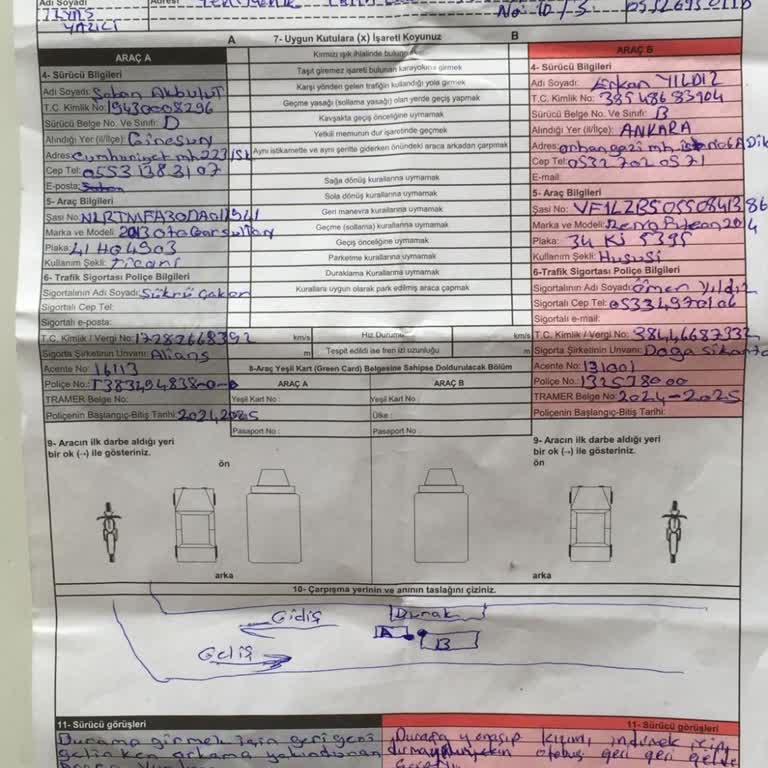 Adı Soyadı
Adres
No 10/3
YAZICI
7- Uygun Kutulara (x) İşareti Koyunuz
A
B
ARAÇ A
4- Sürücü Bilgileri
Adı Soyadı: Şaban Akbulut
T.C. Kimlik No: 19430008296
Sürücü Belge No. Ve Sınıfı: D
Alındığı Yer (il/ilçe): Giresun
Adres: Cumhuriyet mh 223
Cep Tel: 0553 138 3107
E-posta:
5- Araç Bilgileri
Şasi No: NLRTMFA30DA011941
Marka ve Modeli: 2013 otokar sultan
Plaka: 41 HQ 4903
Kullanım Şekli: Ticari
6- Trafik Sigortası Poliçe Bilgileri
Sigortalının Adı Soyadı: Şükrü Çakar
Sigortalı Cep Tel:
Sigortalı e-posta:
T.C. Kimlik / Vergi No: 17282668392
Sigorta Şirketinin Unvanı: Alians
Acente No: 16113
Poliçe No:
TRAMER Belge No:
Poliçenin Başlangıç-Bitiş Tarihi: 2024,2025
Kırmızı ışık ihlalinde bulunmak
Taşıt giremez işareti bulunan karayoluna girmek
Karşı yönden gelen trafiğin kullandığı yola girmek
Geçme yasağı (sollama yasağı) olan yerde geçiş yapmak
Kavşakta geçiş önceliğine uymamak
Yetkili memurun dur işaretinde geçmek
Aynı istikamette ve aynı şeritte giderken önündeki araca arkadan çarpmak
Sağa dönüş kurallarına uymamak
Sola dönüş kurallarına uymamak
Geri manevra kurallarına uymamak
Geçme (sollama) kurallarına uymamak
Geçiş önceliğine uymamak
Parketme kurallarına uymamak
Duraklama Kurallarına uymamak
Kurallara uygun olarak park edilmiş araca çapmak
km/s Hız Durumu km/s
m Tespit edildi ise fren izi uzunluğu m
8-Araç Yeşil Kart (Green Card) Belgesine Sahipse Doldurulacak Bölüm
ARAÇ A ARAÇ B
Yeşil Kart No : Yeşil Kart No :
Ülke : Ülke :
Pasaport No : Pasaport No :
ARAÇ B
4- Sürücü Bilgileri
Adı Soyadı: Erkan YILDIZ
T.C. Kimlik No: 38548683904
Sürücü Belge No. Ve Sınıfı: B
Alındığı Yer (il/ilçe): ANKARA
Adres: orhangazi mh
Cep Tel: 0532 702 0571
E-mail:
5- Araç Bilgileri
Şasi No: VF1LZB50550841386
Marka ve Modeli: 2014
Plaka: 34 KJ 5395
Kullanım Şekli: Hususi
6-Trafik Sigortası Poliçe Bilgileri
Sigortalının Adı Soyadı: ömer Yıldız
Sigortalı Cep Tel: 05334970106
Sigortalı e-mail:
T.C. Kimlik / Vergi No: 38446687332
Sigorta Şirketinin Unvanı: Doga
Acente No: 131001
Poliçe No:
TRAMER Belge No: 2024-2025
Poliçenin Başlangıç-Bitiş Tarihi:
9- Aracın ilk darbe aldığı yeri
bir ok (→) ile gösteriniz.
ön
arka
9- Aracın ilk darbe aldığı yeri
bir ok (→) ile gösteriniz.
ön
arka
10- Çarpışma yerinin ve anının taslağını çiziniz.
Gidiş
Durak
A
B
Geliş
11- Sürücü görüşleri
Durağa girmek için geri geri
gelirken arkama yakından
11- Sürücü görüşleri
Durağa yanaşıp kızımı indirmek için
otobüs geri geri